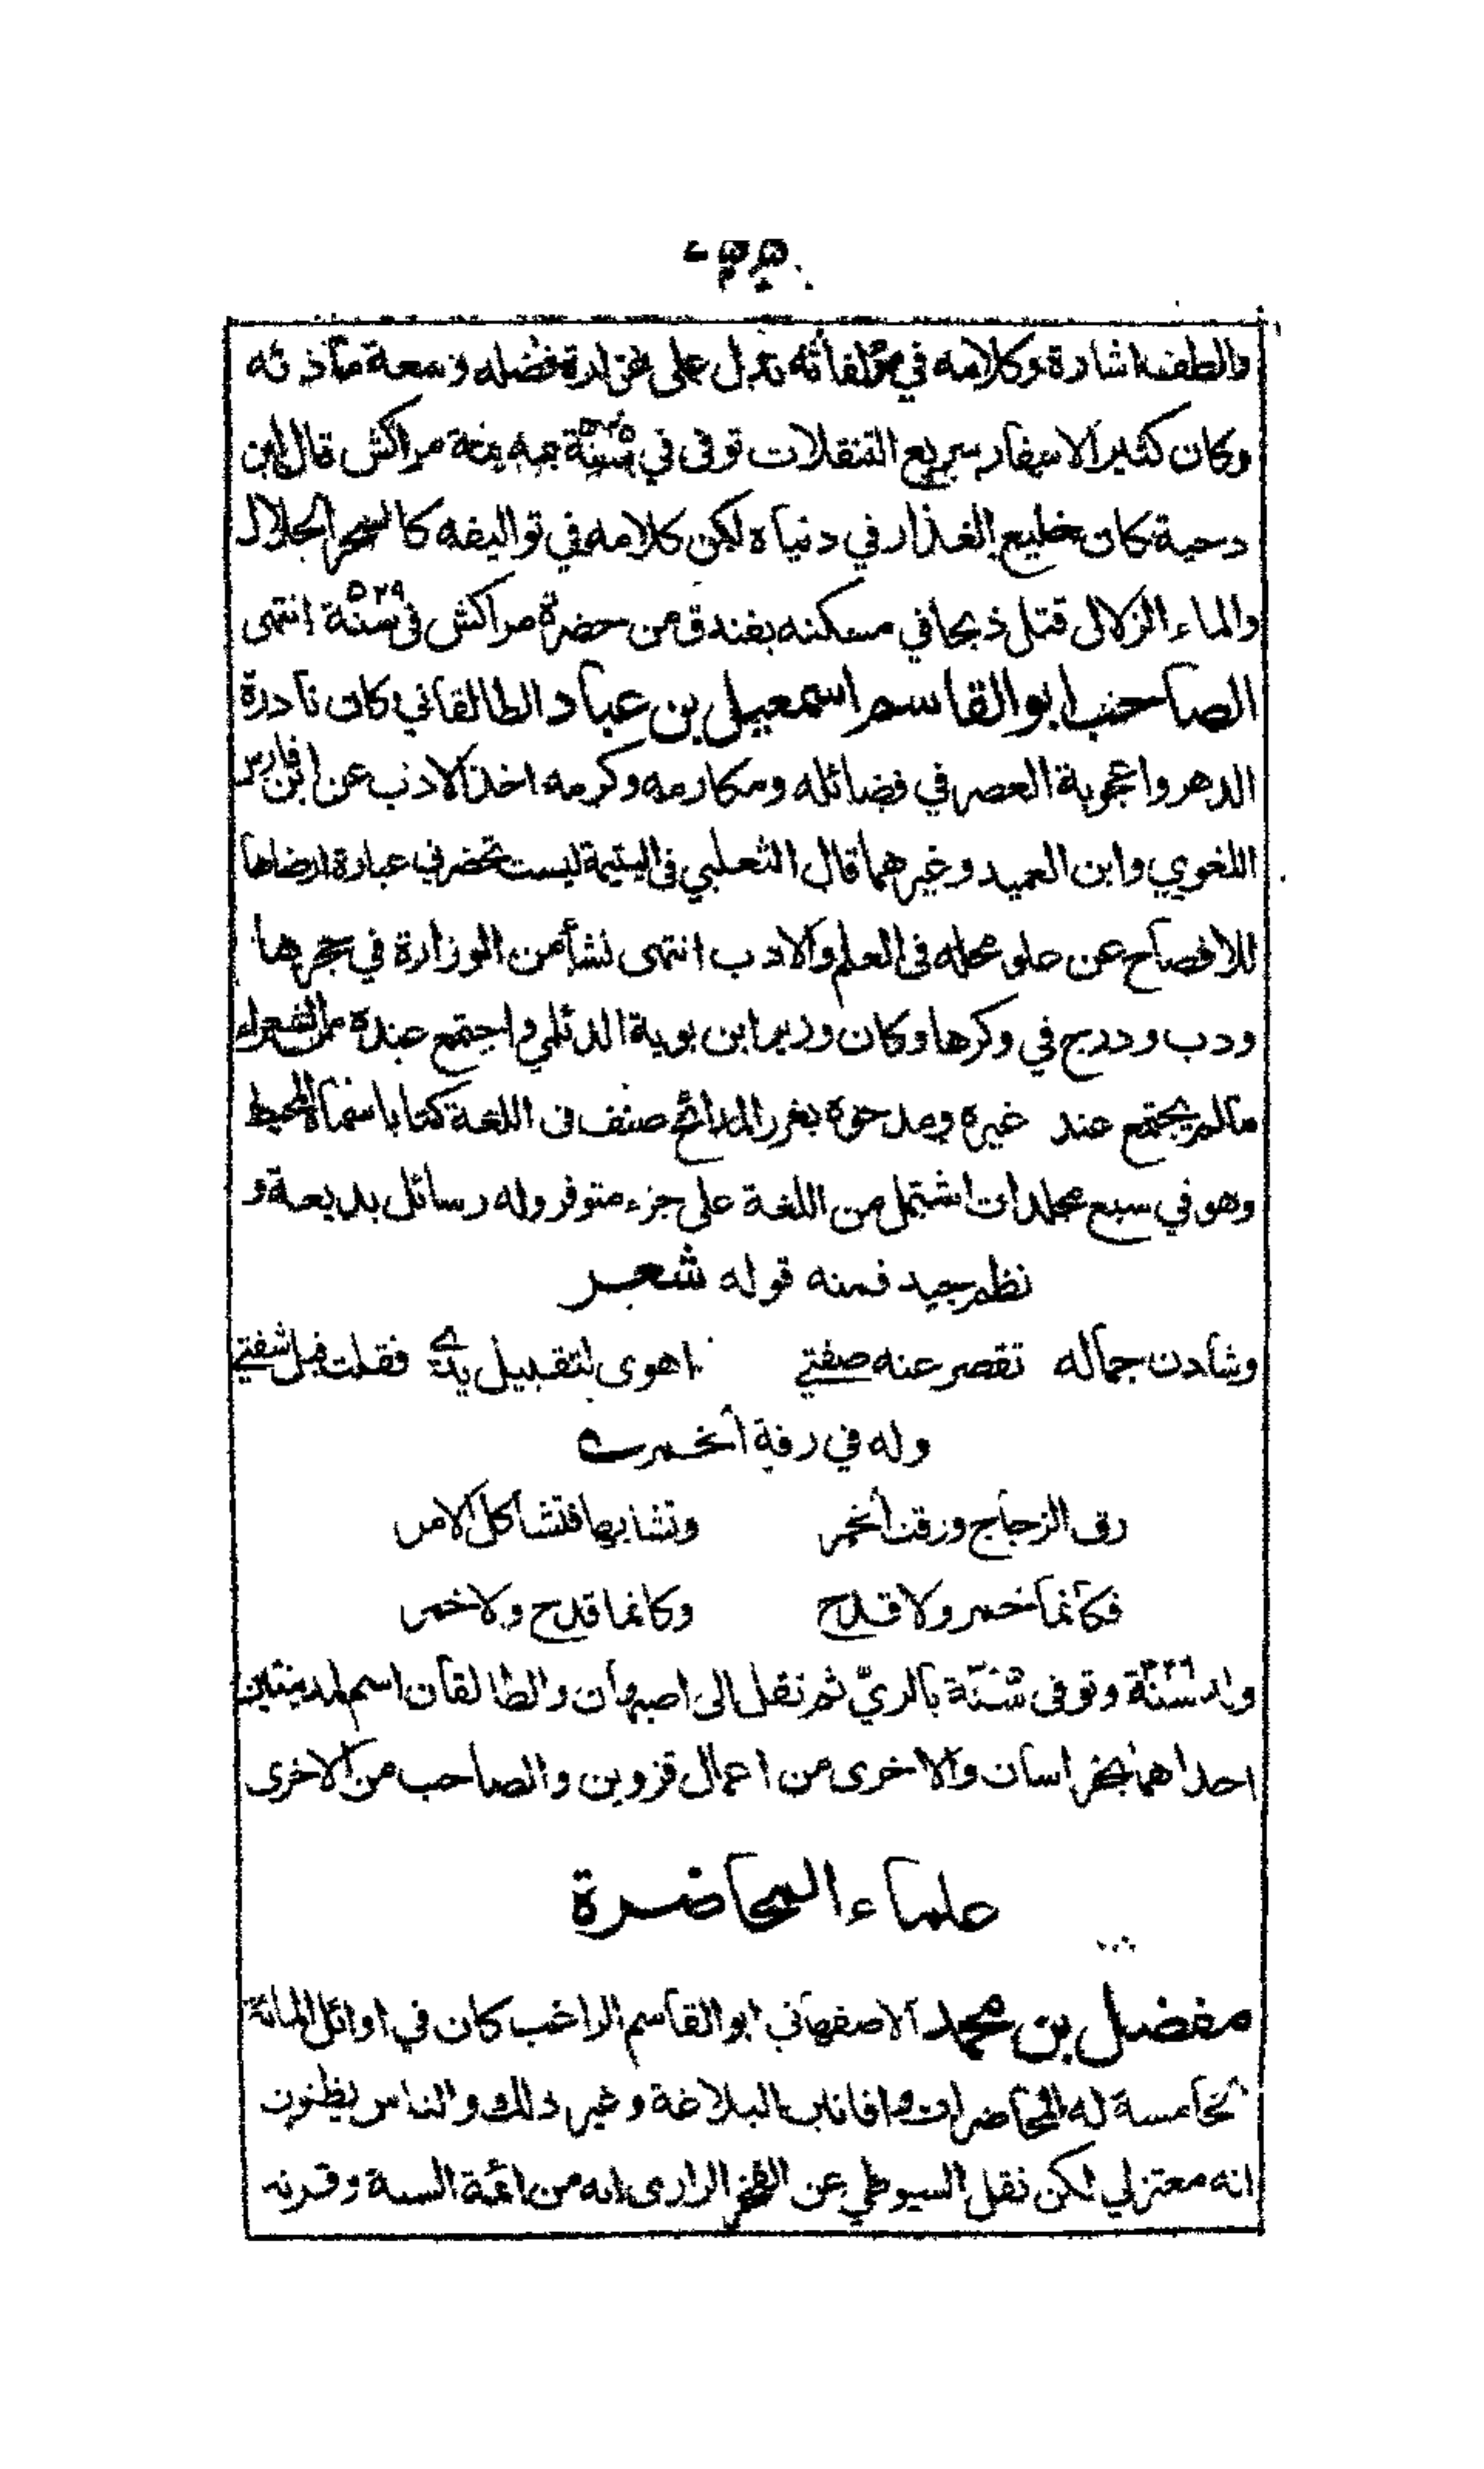 والطف اشارة وكلامه في مؤلفاته تدل على غزارة فضله وسعة مآذته
وكان كثير الاسفار سريع التنقلات توفى في سنة ٥٣٥ بمدينة مراكش قال ابن
دحية كان خليع العذار في دنياه لكن كلامه في تواليفه كالسحر الحلال
والماء الزلال قتل ذبحا في مسكنه بفندق من حضرة مراكش فى سنة ٥٢٩ انتهى
الصاحب ابوالقاسم اسمعيل بن عباد الطالقاني كان نادرة
الدهر واعجوبة العصر في فضائله ومكارمه وكرمه اخذ الادب عن ابن فارس
اللغوي وابن العميد وغيرهما قال الثعلبي فى اليتيمة ليست تحضرني عبارة ارضاها
للافصاح عن علو محله فى العلم والادب انتهى نشأ من الوزارة في حجرها
ودب ودرج في وكرها وكان وزير ابن بوية الدئلي واجتمع عنده من الشعراء
مالم يجتمع عند غيره ومدحوه بغرر المدائح صنف فى اللغة كتابا سماه المحيط
وهو في سبع مجلدات اشتمل من اللغة على جزء متوفر وله رسائل بديعة و
نظم جيد فمنه قوله شعر
وشادن جماله تقصر عنه صفتي اهوى لتقبيل يدي فقلت قبل شفتي
وله في رقة الخمر
رق الزجاج ورقت الخمر وتشابها فتشاكل الامر
فكأنما خمر ولا قدح وكانما قدح ولا خمر
ولد سنة ٣٢٦ وتوفى سنة بالريّ ثم نقل الى اصبهان والطالقان اسم لمدينتين
احداهما بخراسان والاخرى من اعمال قزوين والصاحب من الاخرى
علماء المحاضرة
مفضل بن محمد الاصفهاني ابوالقاسم الراغب كان في اوائل المائة
الخامسة له المحاضرات وافانين البلاغة وغير ذالك والناس يظنون
انه معتزلي لكن نقل السيوطي عن الفخر الرازى انه من ائمة السنة وقرنه